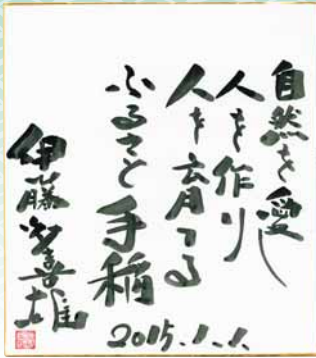 自然を愛し
人を作り
人を育てる
ふるさと手稲
2015.1.1.
伊藤多喜雄